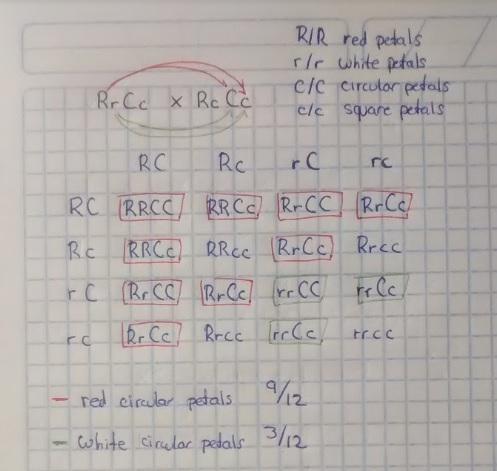 R/R red petals
r/r white petals
C/C circular petals
c/c square petals
RrCc x RcCc
RC Rc rC rc
RC RRCC RRCc RrCC RrCc
Rc RRCc RRcc RrCc Rrcc
rC RrCC RrCc rrCC rrCc
rc RrCc Rrcc rrCc rrcc
- red circular petals 9/12
- White circular petals 3/12